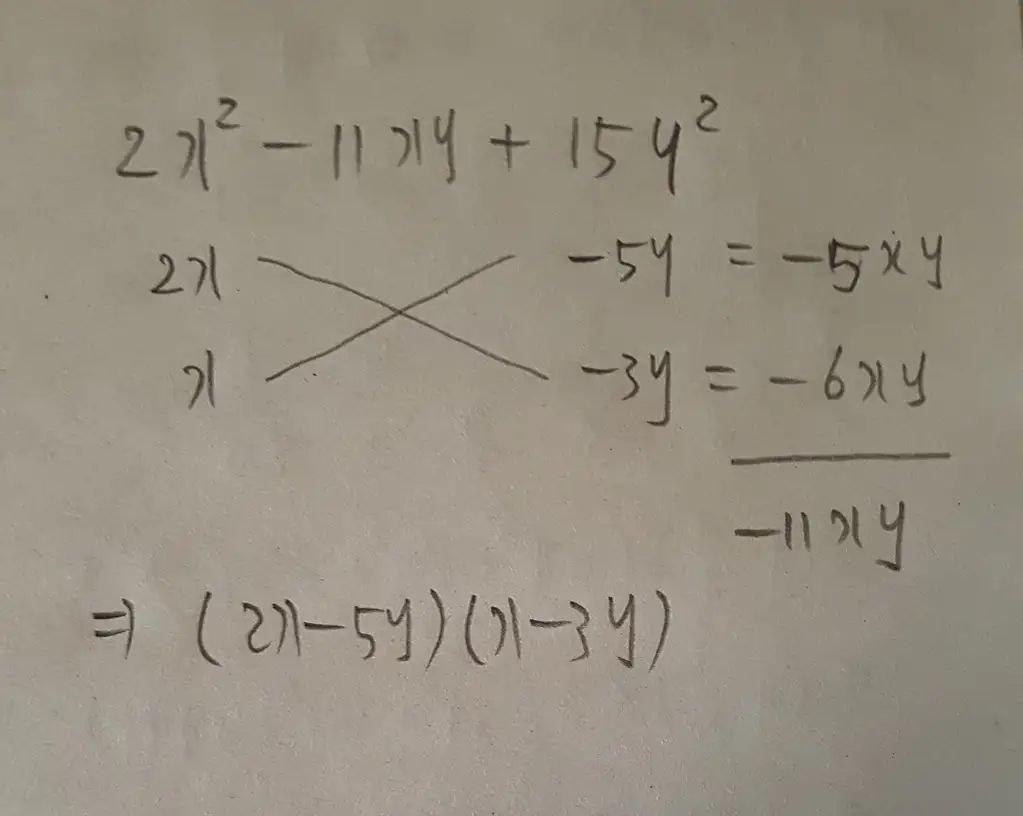 2x² - 11xy + 15y²
2x -5y = -5xy
x -3y = -6xy
-11xy
⇒ (2x-5y)(x-3y)